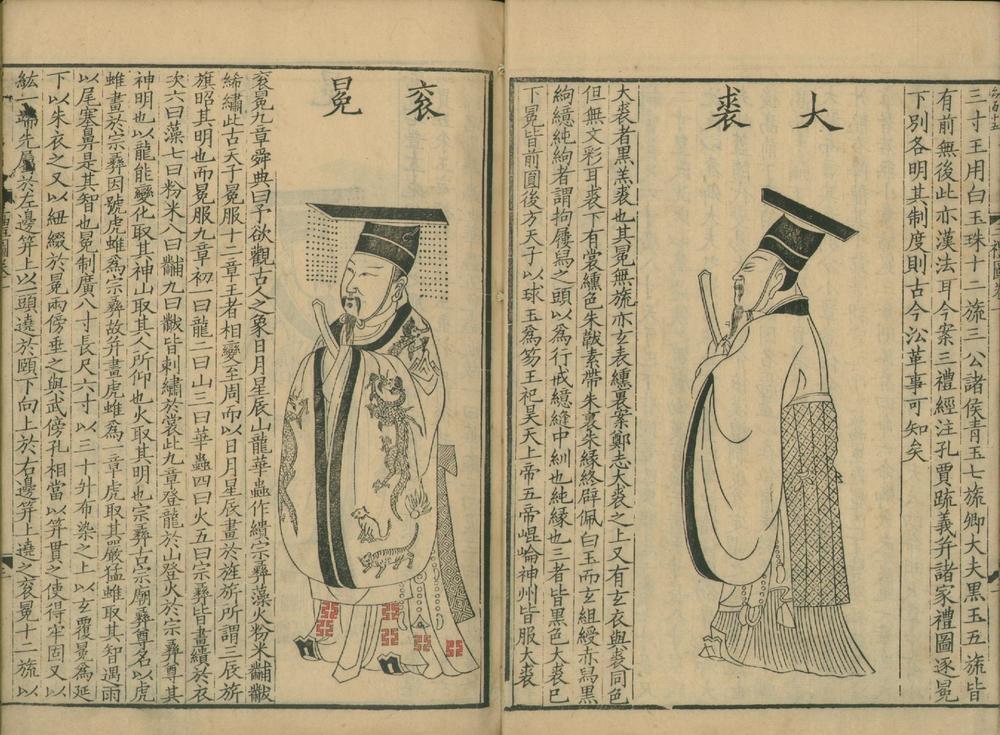 三寸王用白玉珠十二旒三公諸侯青玉七旒卿大夫黑玉五旒皆
有前無後此亦漢法耳今案三禮經注孔賈疏義并諸家禮圖逐冕
下別各明其制度則古今沿革事可知矣
大裘
大裘者黑羔裘也其冕無旒亦玄表纁裏案鄭志大裘之上又有玄衣與裘同色
但無文彩耳裘下有裳纁色朱韍素帶朱裏朱緣終辟佩白玉而玄組綬赤舄黑
絇繶純絇者謂拘屨舄之頭以爲行戒繶縫中紃也純緣也三者皆黑色大裘已
下冕皆前圓後方天子以球玉爲笏王祀昊天上帝五帝崐崘神州皆服大裘
衮冕
衮冕九章舜典曰予欲觀古人之象日月星辰山龍華蟲作繢宗彝藻火粉米黼黻
絺繡此古天子冕服十二章王者相變至周而以日月星辰畫於旌旂所謂三辰旂
旗昭其明也而冕服九章初一曰龍二曰山三曰華蟲四曰火五曰宗彝皆畫繢於衣
次六曰藻七曰粉米八曰黼九曰黻皆刺繡於裳此九章登龍於山登火於宗彝尊其
神明也以龍能變化取其神山取其人所仰也火取其明也宗彝古宗廟彝尊名以虎
蜼畫於宗彝因號虎蜼爲宗彝故并畫虎蜼爲一章虎取其嚴猛蜼取其智遇雨
以尾塞鼻是其智也冕制廣八寸長尺六寸以三十升布染之上以玄覆冕爲延
下以朱衣之又以紐綴於冕兩傍垂之與武傍孔相當以笄貫之使得牢固又以
紘一端先屬於左邊笄上以一頭遶於頤下向上於右邊笄上遶之衮冕十二旒以